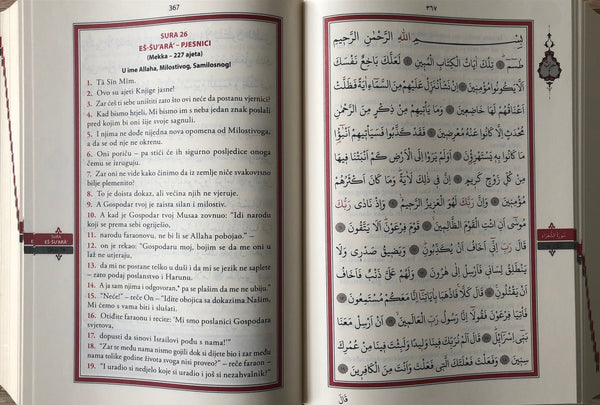 367
SURA 26
EŠ-ŠU'ARĀ' – PJESNICI
(Mekka – 227 ajeta)
U ime Allaha, Milostivog, Samilosnog!
1. Tā Sīn Mīm.
2. Ovo su ajeti Knjige jasne!
3. Zar ćeš ti sebe uništiti zato što ovi neće da postanu vjernici?
4. Kad bismo htjeli, Mi bismo im s neba jedan znak poslali
pred kojim bi oni šije svoje sagnuli.
5. I njima ne dođe nijedna nova opomena od Milostivoga,
a da se od nje ne okrenu.
6. Oni poriču – pa stići će ih sigurno posljedice onoga
čemu se izruguju.
7. Zar oni ne vide kako činimo da iz zemlje niče svakovrsno
bilje plemenito?
8. To je doista dokaz, ali većina njih ne vjeruje.
9. A Gospodar tvoj je zaista silan i milostiv.
10. A kad je Gospodar tvoj Musaa zovnuo: "Idi narodu
koji se prema sebi ogriješio,
11. narodu faraonovu, ne bi li se Allaha pobojao." –
12. on je rekao: "Gospodaru moj, bojim se da me oni u
laž ne utjeraju,
13. da mi ne postane teško u duši i da mi se jezik ne saplete
– zato podaj poslanstvo i Harunu.
14. A ja sam njima i odgovoran,* pa se plašim da me ne ubiju."
15. "Neće!" – reče On – "Idite obojica sa dokazima Našim,
Mi ćemo s vama biti i slušati.
16. Otiđite faraonu i recite: 'Mi smo poslanici Gospodara
svjetova,
17. dopusti da sinovi Israilovi pođu s nama!'"
18. "Zar te među nama nismo gojili dok si dijete bio i zar među
nama tolike godine života svoga nisi proveo?" – reče faraon –
19. "I uradio si nedjelo koje si uradio i još si nezahvalnik?"
SURA
EŠ-ŠU'ARĀ'
٣٦٧
بِسْمِ اللهِ الرَّحْمٰنِ الرَّحِيمِ
طسم ۝ تِلْكَ اٰيَاتُ الْكِتَابِ الْمُبِينِ ۝ لَعَلَّكَ بَاخِعٌ نَفْسَكَ
اَلَّا يَكُونُوا مُؤْمِنِينَ ۝ اِنْ نَشَأْ نُنَزِّلْ عَلَيْهِمْ مِنَ السَّمَاءِ اٰيَةً فَظَلَّتْ
اَعْنَاقُهُمْ لَهَا خَاضِعِينَ ۝ وَمَا يَأْتِيهِمْ مِنْ ذِكْرٍ مِنَ الرَّحْمٰنِ
مُحْدَثٍ اِلَّا كَانُوا عَنْهُ مُعْرِضِينَ ۝ فَقَدْ كَذَّبُوا فَسَيَأْتِيهِمْ اَنْبٰٓؤُا
مَا كَانُوا بِهِ يَسْتَهْزِؤُنَ ۝ اَوَلَمْ يَرَوْا اِلَى الْاَرْضِ كَمْ اَنْبَتْنَا فِيهَا
مِنْ كُلِّ زَوْجٍ كَرِيمٍ ۝ اِنَّ فِي ذٰلِكَ لَاٰيَةً وَمَا كَانَ اَكْثَرُهُمْ
مُؤْمِنِينَ ۝ وَاِنَّ رَبَّكَ لَهُوَ الْعَزِيزُ الرَّحِيمُ ۝ وَاِذْ نَادٰى رَبُّكَ
مُوسٰى اَنِ ائْتِ الْقَوْمَ الظَّالِمِينَ ۝ قَوْمَ فِرْعَوْنَ اَلَا يَتَّقُونَ ۝
قَالَ رَبِّ اِنِّي اَخَافُ اَنْ يُكَذِّبُونِ ۝ وَيَضِيقُ صَدْرِي وَلَا
يَنْطَلِقُ لِسَانِي فَاَرْسِلْ اِلٰى هٰرُونَ ۝ وَلَهُمْ عَلَيَّ ذَنْبٌ فَاَخَافُ
اَنْ يَقْتُلُونِ ۝ قَالَ كَلَّا فَاذْهَبَا بِاٰيَاتِنَا اِنَّا مَعَكُمْ مُسْتَمِعُونَ ۝
فَأْتِيَا فِرْعَوْنَ فَقُولَا اِنَّا رَسُولُ رَبِّ الْعَالَمِينَ ۝ اَنْ اَرْسِلْ مَعَنَا
بَنِي اِسْرَائِلَ ۝ قَالَ اَلَمْ نُرَبِّكَ فِينَا وَلِيدًا وَلَبِثْتَ فِينَا مِنْ عُمُرِكَ
سِنِينَ ۝ وَفَعَلْتَ فَعْلَتَكَ الَّتِي فَعَلْتَ وَاَنْتَ مِنَ الْكَافِرِينَ ۝
قَالَ
سُورَةُ الشُّعَرَاءِ